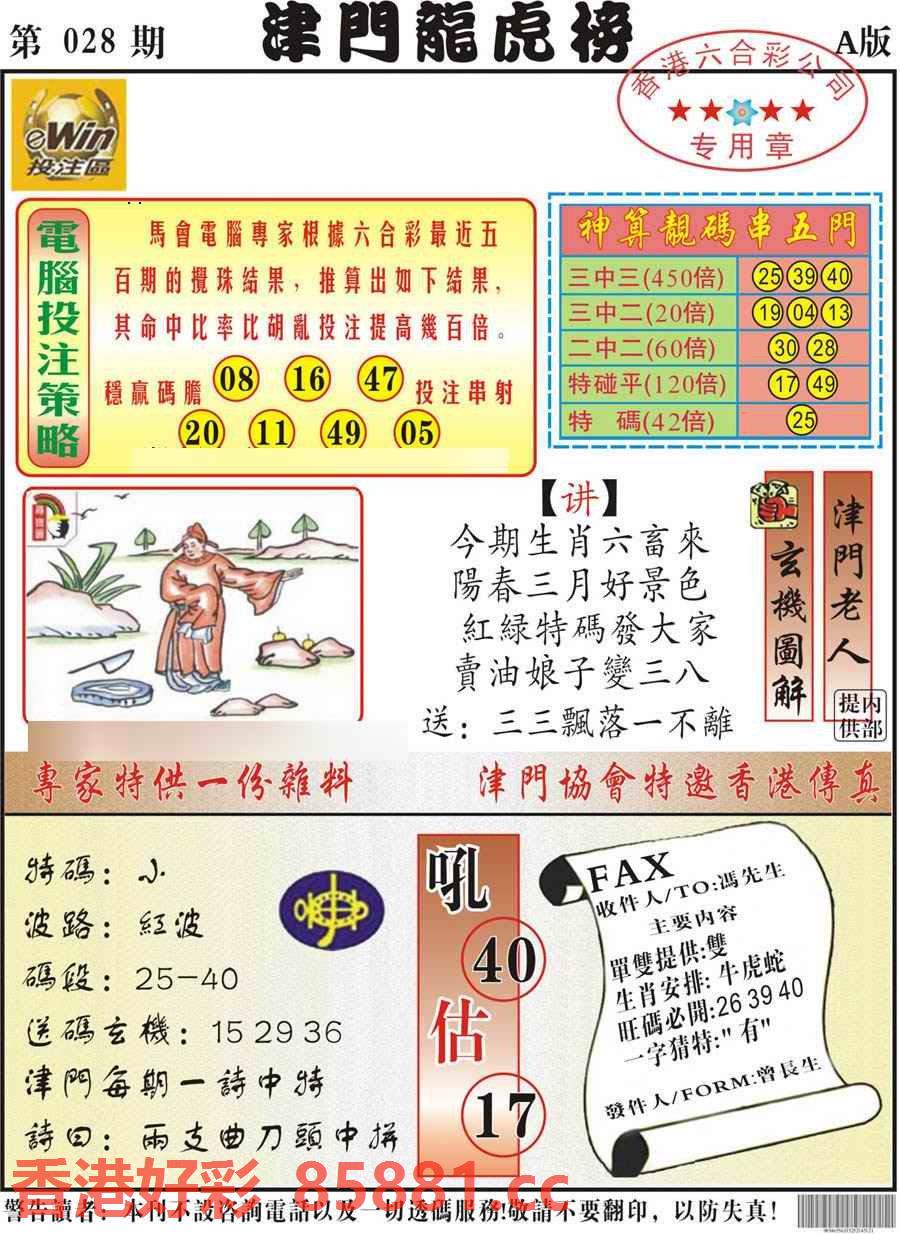 第 028 期
津門龍虎榜
A版
香港六合彩公司
★★★★
专用章
eWin
投注區
電腦投注策略
馬會電腦專家根據六合彩最近五
百期的攪珠結果，推算出如下結果，
其命中比率比胡亂投注提高幾百倍。
穩贏碼膽 08 16 47 投注串射
20 11 49 05
神算靚碼串五門
三中三(450倍) 25 39 40
三中二(20倍) 19 04 13
二中二(60倍) 30 28
特碰平(120倍) 17 49
特 碼(42倍) 25
【讲】
今期生肖六畜來
陽春三月好景色
紅緑特碼發大家
賣油娘子變三八
送：三三飄落一不離
玄機圖解
津門老人
提供
内部
專家特供一份雜料
津門協會特邀香港傳真
特碼：小
波路：紅波
碼段：25-40
送碼玄機：15 29 36
津門每期一詩中特
詩曰：兩支曲刀頭中拼
吼
40
估
17
FAX
收件人/TO:馮先生
主要内容
單雙提供:雙
生肖安排:牛虎蛇
旺碼必開:26 39 40
一字猜特:"有"
發件人/FORM:曾長生
香港好彩 85881.cc
警告讀者：本刊不設咨詢電話以及一切透碼服務!敬請不要翻印，以防失真!